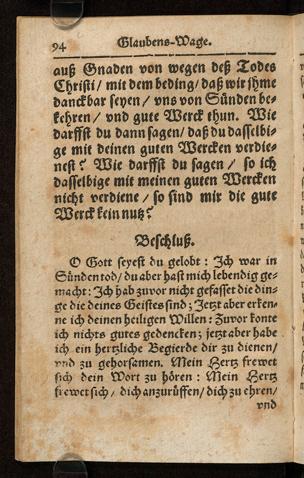 94 Glaubens-Wage.
auß Gnaden von wegen deß Todes
Christi / mit dem beding / daß wir ihme
danckbar seyen / vns von Sünden be-
kehren / vnd gute Werck thun. Wie
darffst du dann sagen / daß du dasselbi-
ge mit deinen guten Wercken verdie-
nest? Wie darffst du sagen / so ich
dasselbige mit meinen guten Wercken
nicht verdiene / so sind mir die gute
Werck kein nutz?
Beschluß.
O Gott seyest du gelobt : Ich war in
Sünden tod / du aber hast mich lebendig ge-
macht : Ich hab zuvor nicht gefasset die din-
ge die deines Geistes sind ; Jetzt aber erken-
ne ich deinen heiligen Willen : Zuvor konte
ich nichts gutes gedencken ; jetzt aber habe
ich ein hertzliche Begierde dir zu dienen /
vnd zu gehorsamen. Mein Hertz frewet
sich dein Wort zu hören : Mein Hertz
frewet sich / dich anzurüffen / dich zu ehren /
vnd